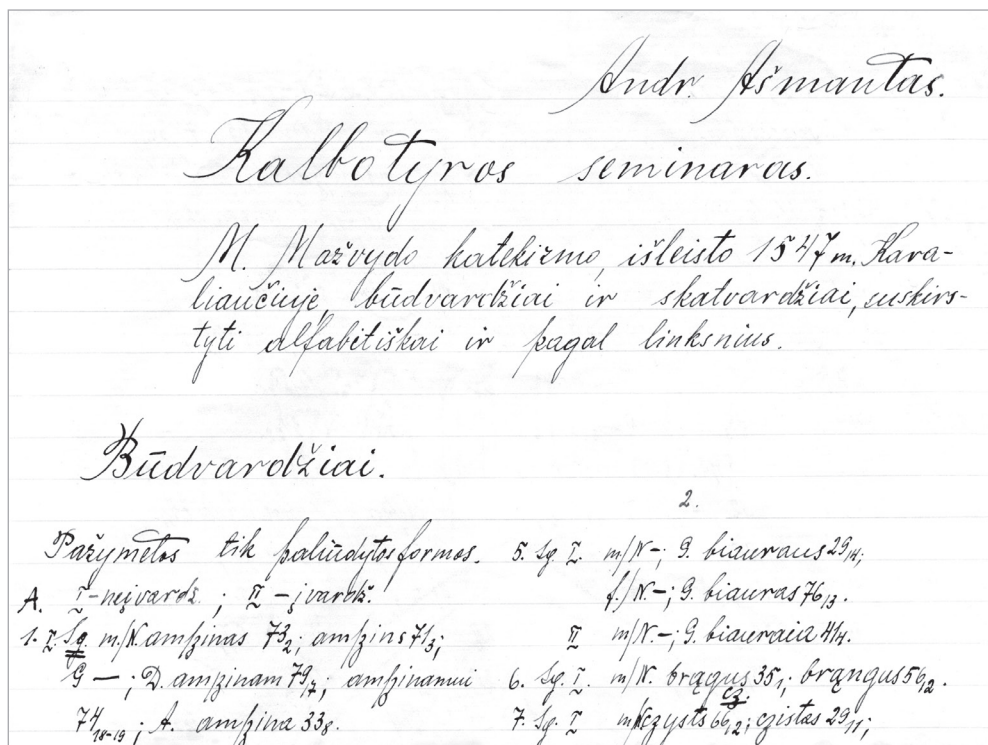 Andr. Ašmantas.
Kalbotyros seminaras.
M. Mažvydo katekizmo, išleisto 1547 m. Kara-
liaučiuje, būdvardžiai ir skatvardžiai, suskirs-
tyti alfabėtiškai ir pagal linksnius.
Būdvardžiai.
Pažymėtos tik paliūdytos formos.
A. I-neįvardž. ; II - įvardž.
1. I. Sg. m/N. amſzinas 73₂; amſzins 71₃;
G — ; D. amſzinam 79₁₇; amſzinamui
74₁₈₋₁₉; A. amſzina 33₈.
2.
5. Sg. I. m/N-; G. biauraus 29₁₄;
f./N-; G. biauras 76₁₃.
II m/N.-; G. biauraia 41₄.
6. Sg. I. m/N. brągus 35₁; brąngus 56₁₂.
cz.
7. Sg. I m/N czysts 66₁₂; czistas 29₁₁;